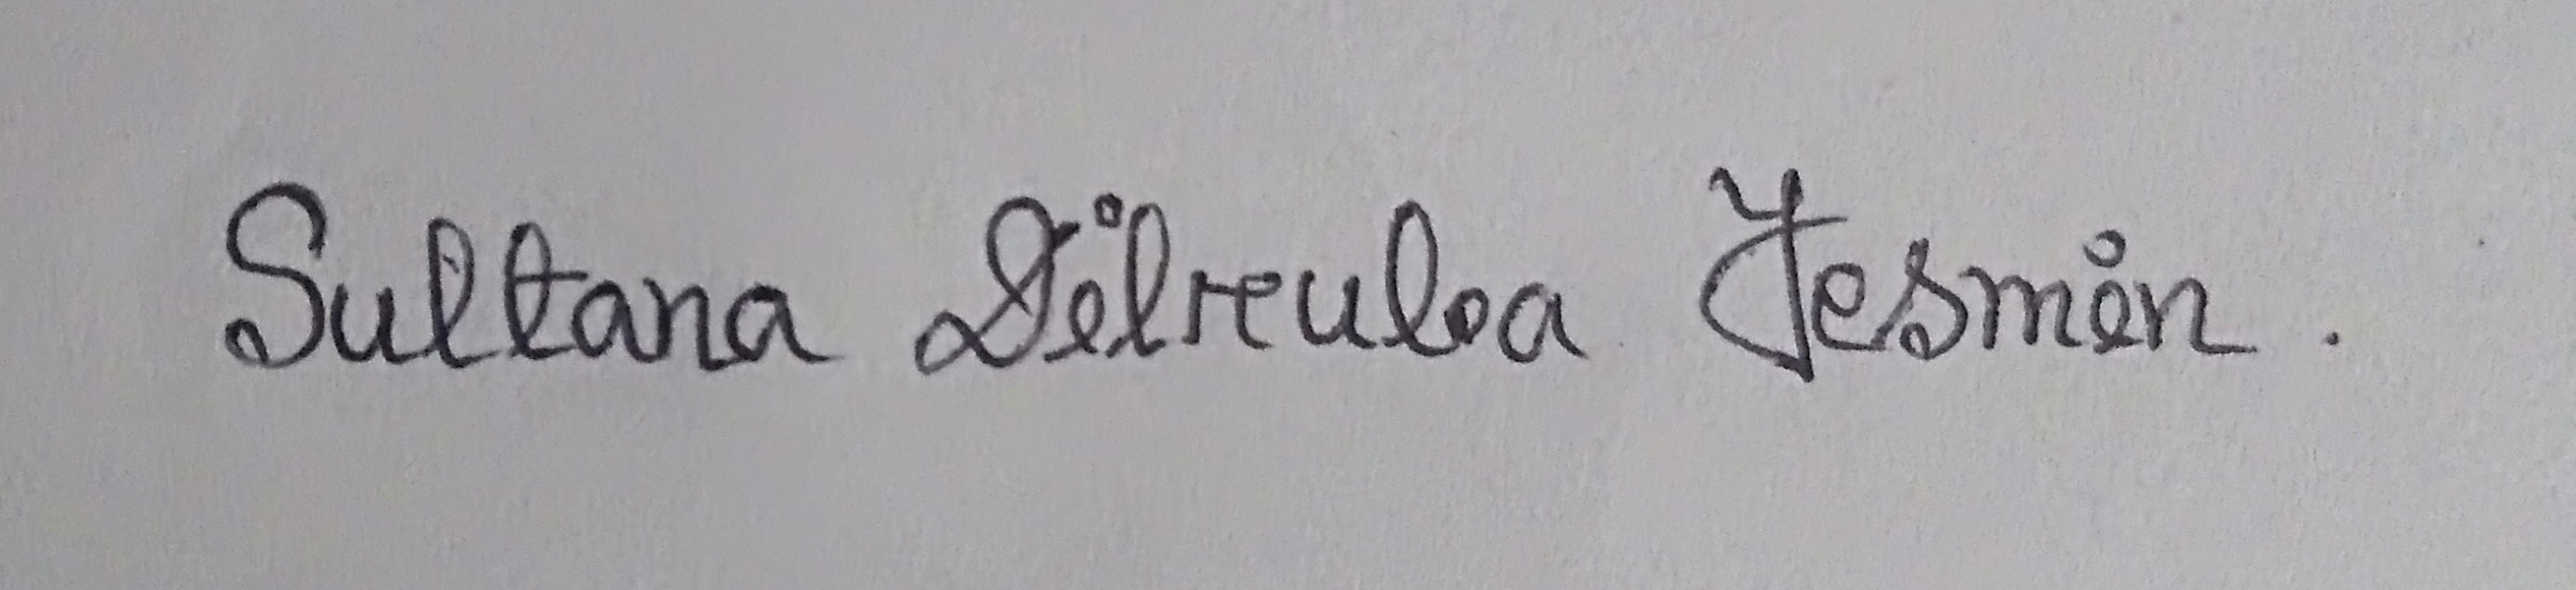 Sultana Dilruba Jesmin.